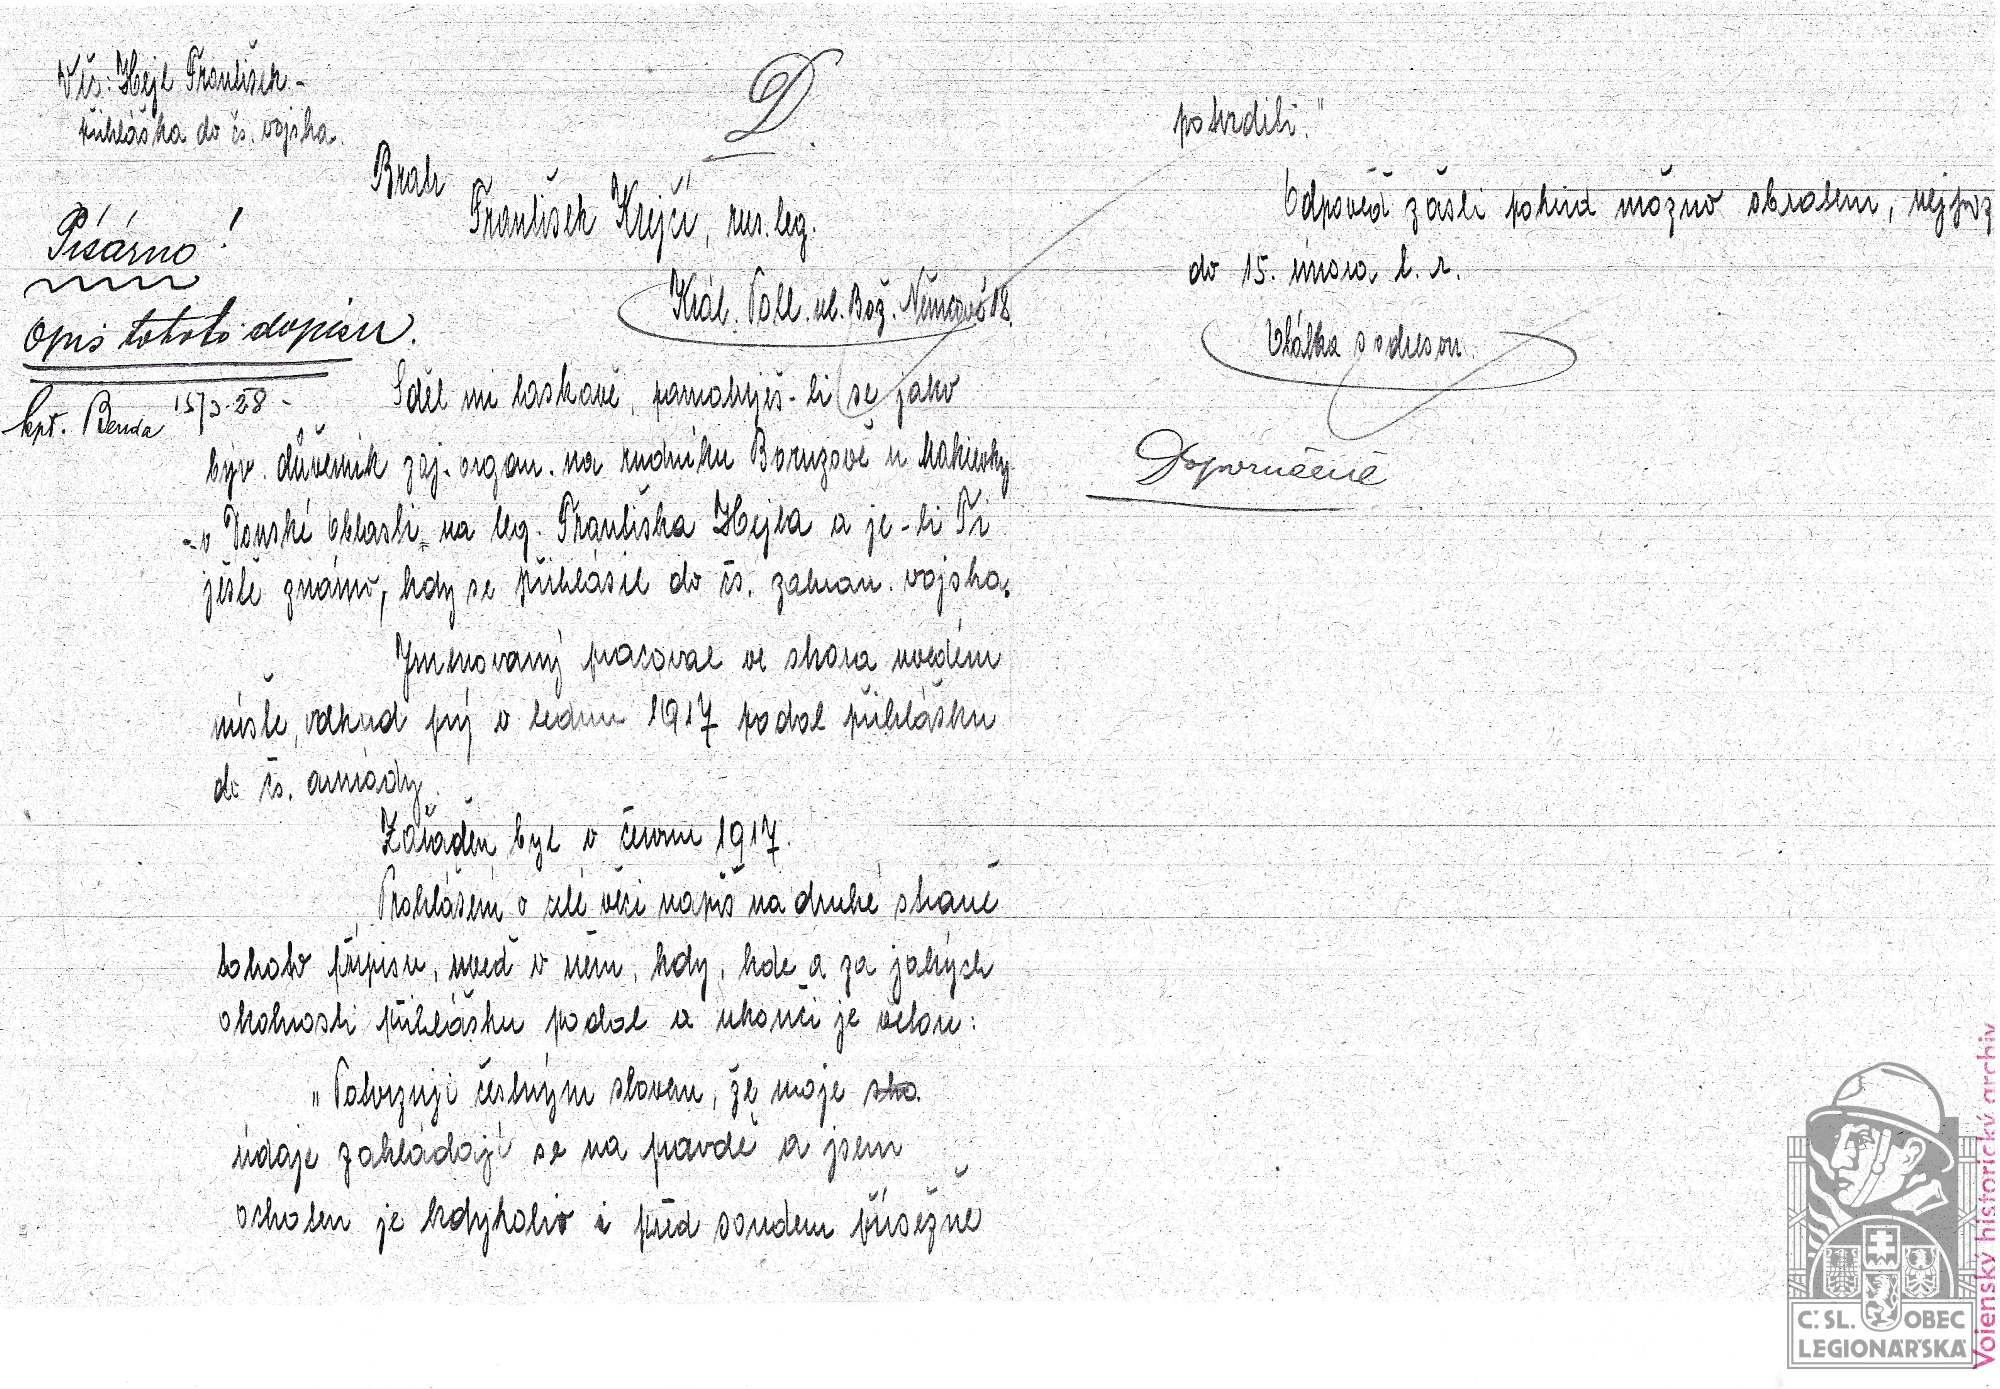 Věc: Hejl František -
přihláška do čs. vojska.
D.
Bratr
František Krejčí, rus. leg.
Král. Poll. ul. Bož. Němcové 18.
Písárno!
Opis tohoto dopisu.
kpt. Benda 15/3. 28 -
Sděl mi laskavě, pamatuješ-li se jako
býv. důvěrník zaj. organ. na rudníku Boruzově u Makievky
v Donské oblasti, na leg. Františka Hejla a je-li Ti
ještě známo, kdy se přihlásil do čs. zahran. vojska.
Jmenovaný pracoval ve shora uvedém
místě, odkud prý v lednu 1917 podal přihlášku
do čs. armády.
Zařaděn byl v červnu 1917.
Prohlášení o celé věci napiš na druhé straně
tohoto přípisu, uveď v něm, kdy, kde a za jakých
okolností přihlášku podal a ukonči je větou:
"Potvrzuji čestným slovem, že moje sho.
údaje zakládají se na pravdě a jsem
ochoten je kdykoliv i před soudem přísežně
potvrditi."
Odpověď zašli pokud možno obratem, nejpoz
do 15. února t. r.
Obálka s adresou.
Doporučeně
Vojenský historický archiv
Č. SL. OBEC
LEGIONÁŘSKÁ